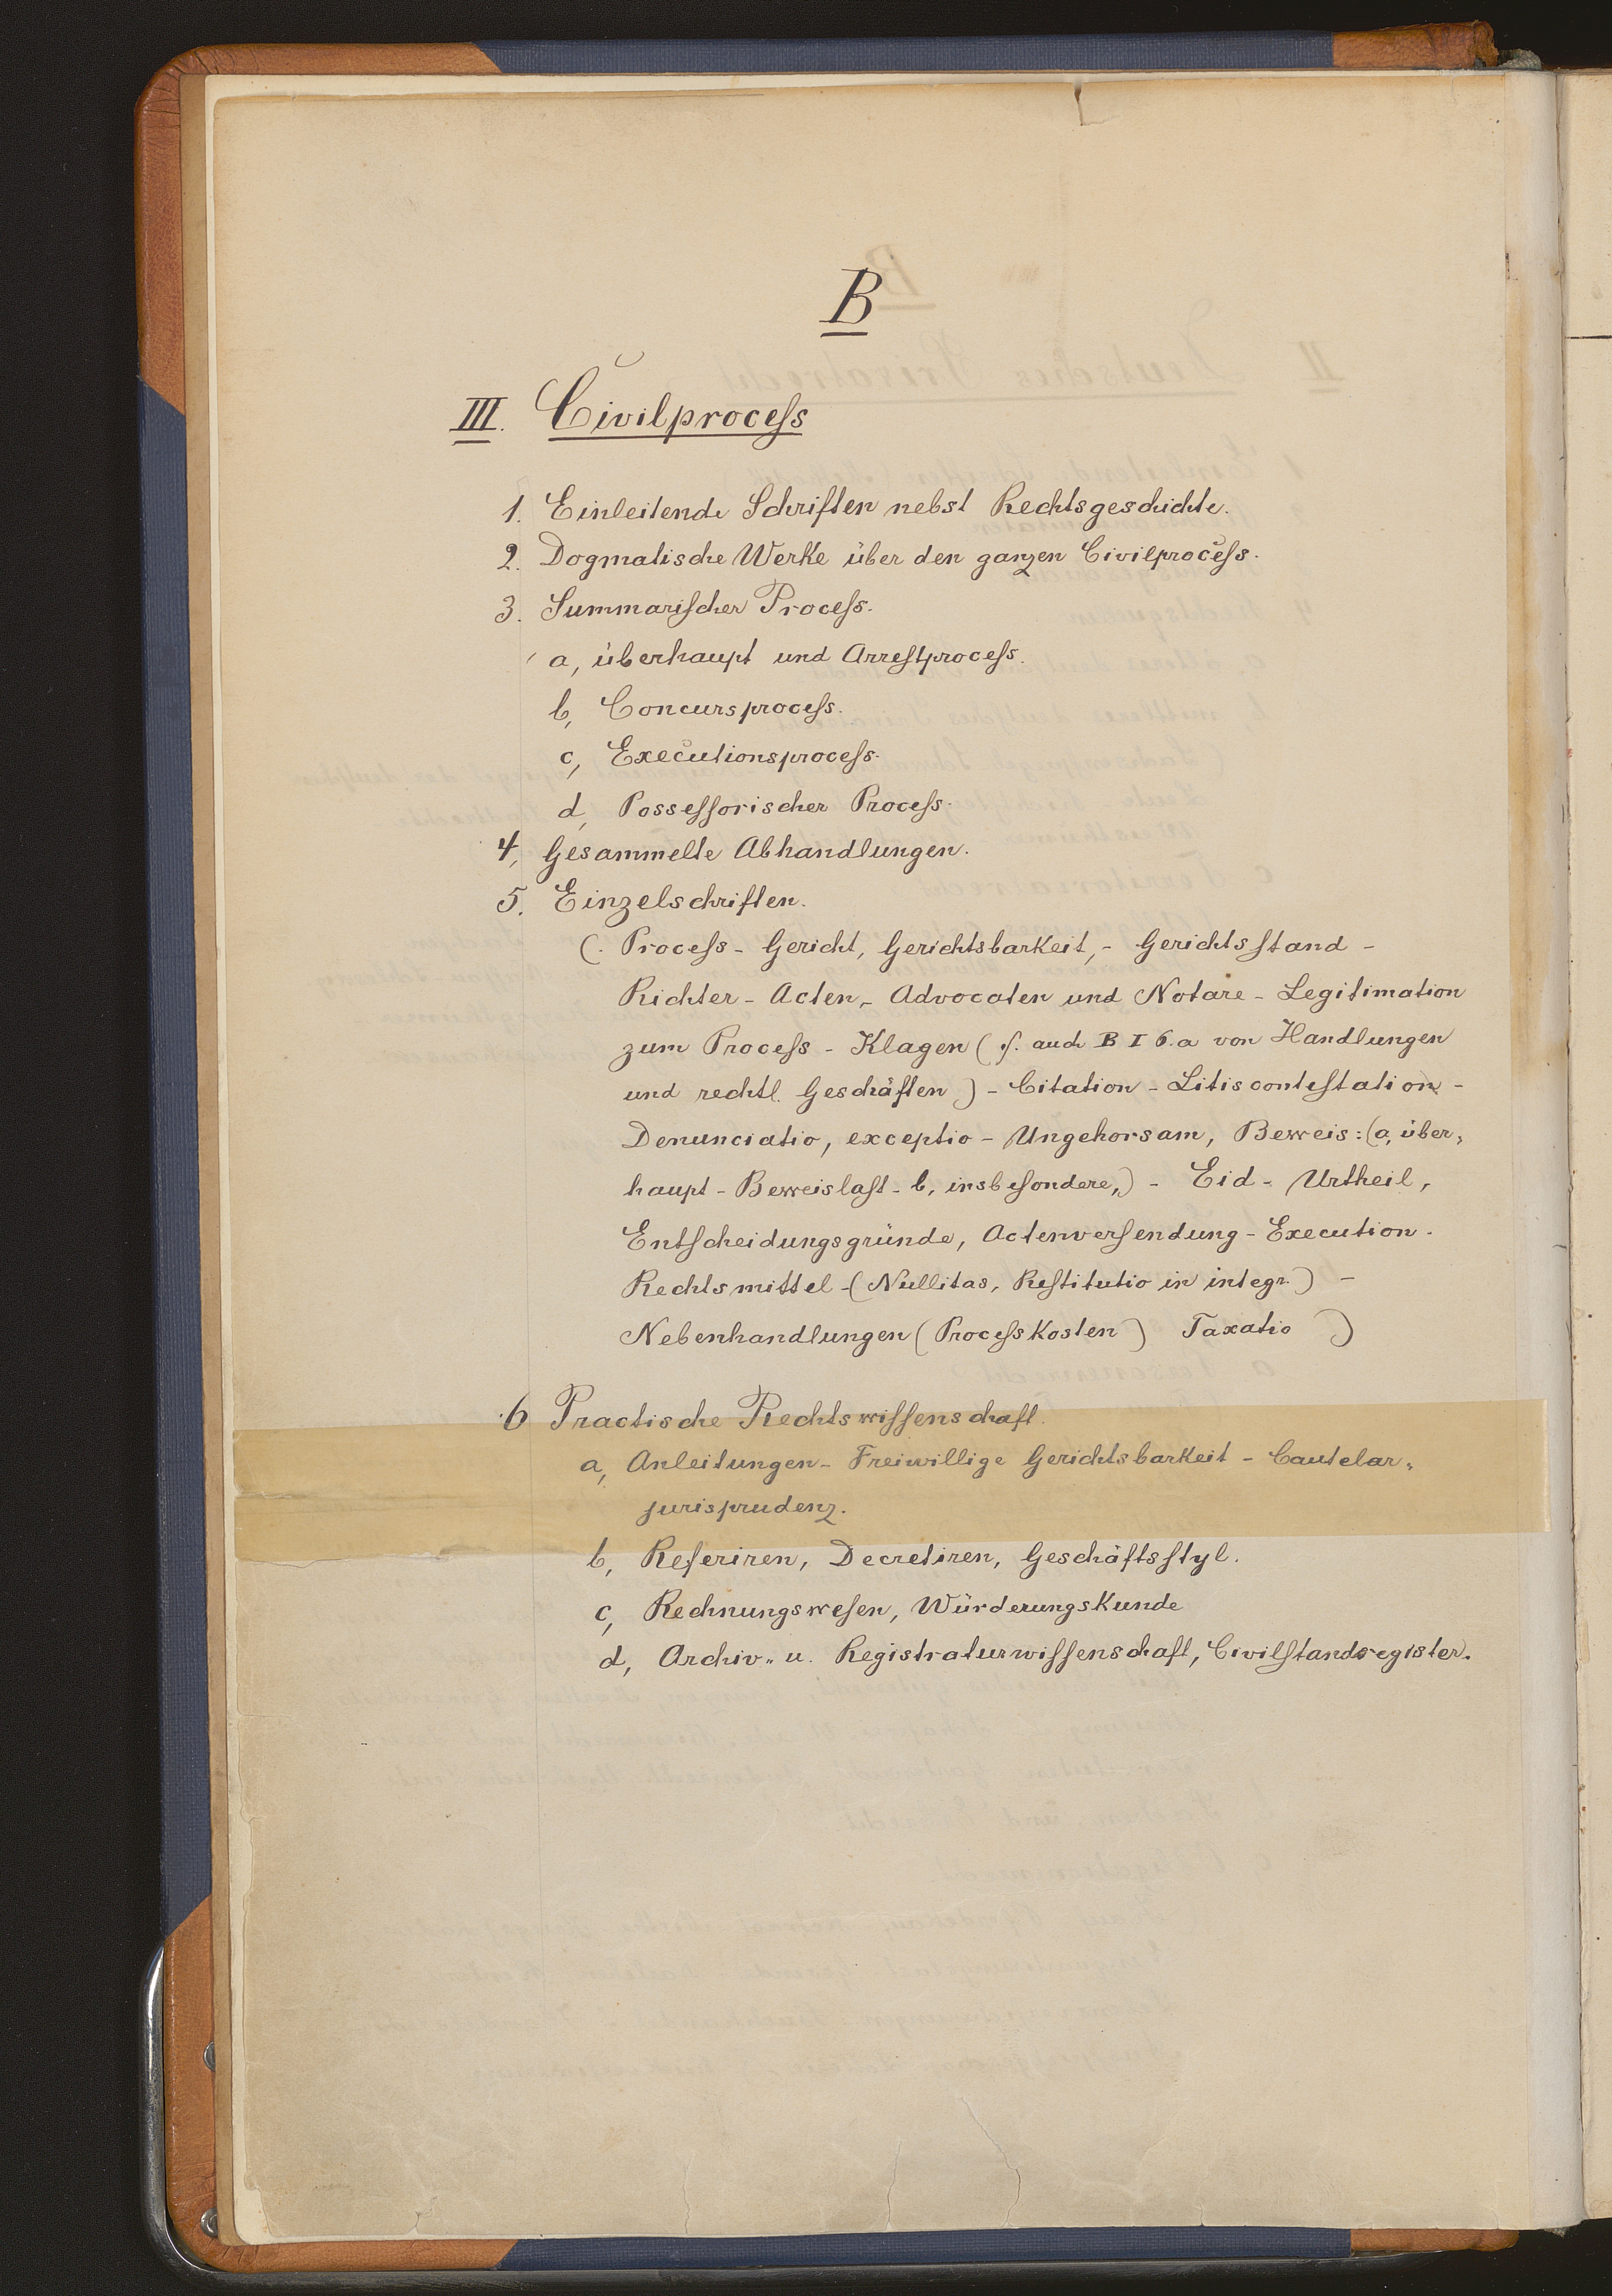 B
III. Civilproceſs
1. Einleitende Schriften nebst Rechtsgeschichte.
2. Dogmatische Werke über den ganzen Civilproceſs.
3. Summariſcher Proceſs.
a, überhaupt und Arreſtproceſs.
b, Concursproceſs.
c, Executionsproceſs.
d, Posseſſorischer Proceſs.
4, Gesammelte Abhandlungen.
5. Einzelschriften.
(. Proceſs - Gericht, Gerichtsbarkeit, - Gerichtsſtand -
Richter - Acten, - Advocaten und Notare - Legitimation
zum Proceſs - Klagen (ſ. auch B I 6.a von Handlungen
und rechtl. Geschäften) - Citation - Litisconteſtation -
Denunciatio, exceptio - Ungehorsam, Beweis: (a, über„
haupt - Beweislaſt - b, insbeſondere,) - Eid - Urtheil,
Entſcheidungsgründe, Actenverſendung - Execution.
Rechtsmittel - (Nullitas, Reſtitutio in integr.) -
Nebenhandlungen (Proceſskosten) Taxatio )
6 Practische Rechtswiſſenschaft.
a, Anleitungen - Freiwillige Gerichtsbarkeit - Cautelar„
jurisprudenz.
b, Referiren, Decretiren, Geschäftsſtyl.
c, Rechnungsweſen, Würderungskunde
d, Archiv„ u. Registraturwiſſenschaft, Civilſtandsregister.